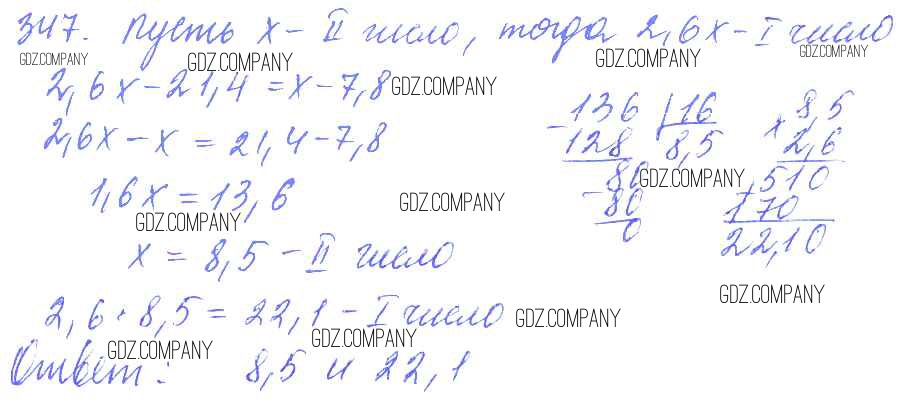 347. Пусть x – II число, тогда 2,6x – I число
GDZ.COMPANY GDZ.COMPANY GDZ.COMPANY GDZ.COMPANY
2,6x – 21,4 = x – 7,8 GDZ.COMPANY
2,6x – x = 21,4 – 7,8
1,6x = 13,6
GDZ.COMPANY GDZ.COMPANY
x = 8,5 – II число
2,6 · 8,5 = 22,1 – I число GDZ.COMPANY
GDZ.COMPANY GDZ.COMPANY
Ответ: 8,5 и 22,1
– 136 | 16
128 8,5
80 GDZ.COMPANY
– 80
0
x 8,5
2,6
+ 510
170
22,10
GDZ.COMPANY